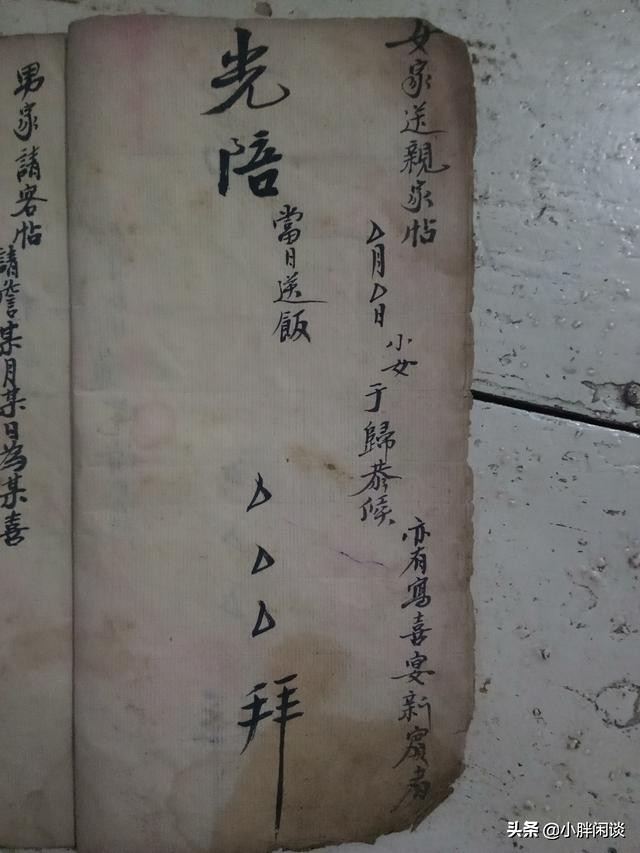 女家送親家帖
亦有寫喜宴新賓者
厶月厶日小女于歸恭候
光陪
當日送飯
厶厶厶拜
男家請客帖
請詹某月某日為某喜
头条 @小胖闲谈